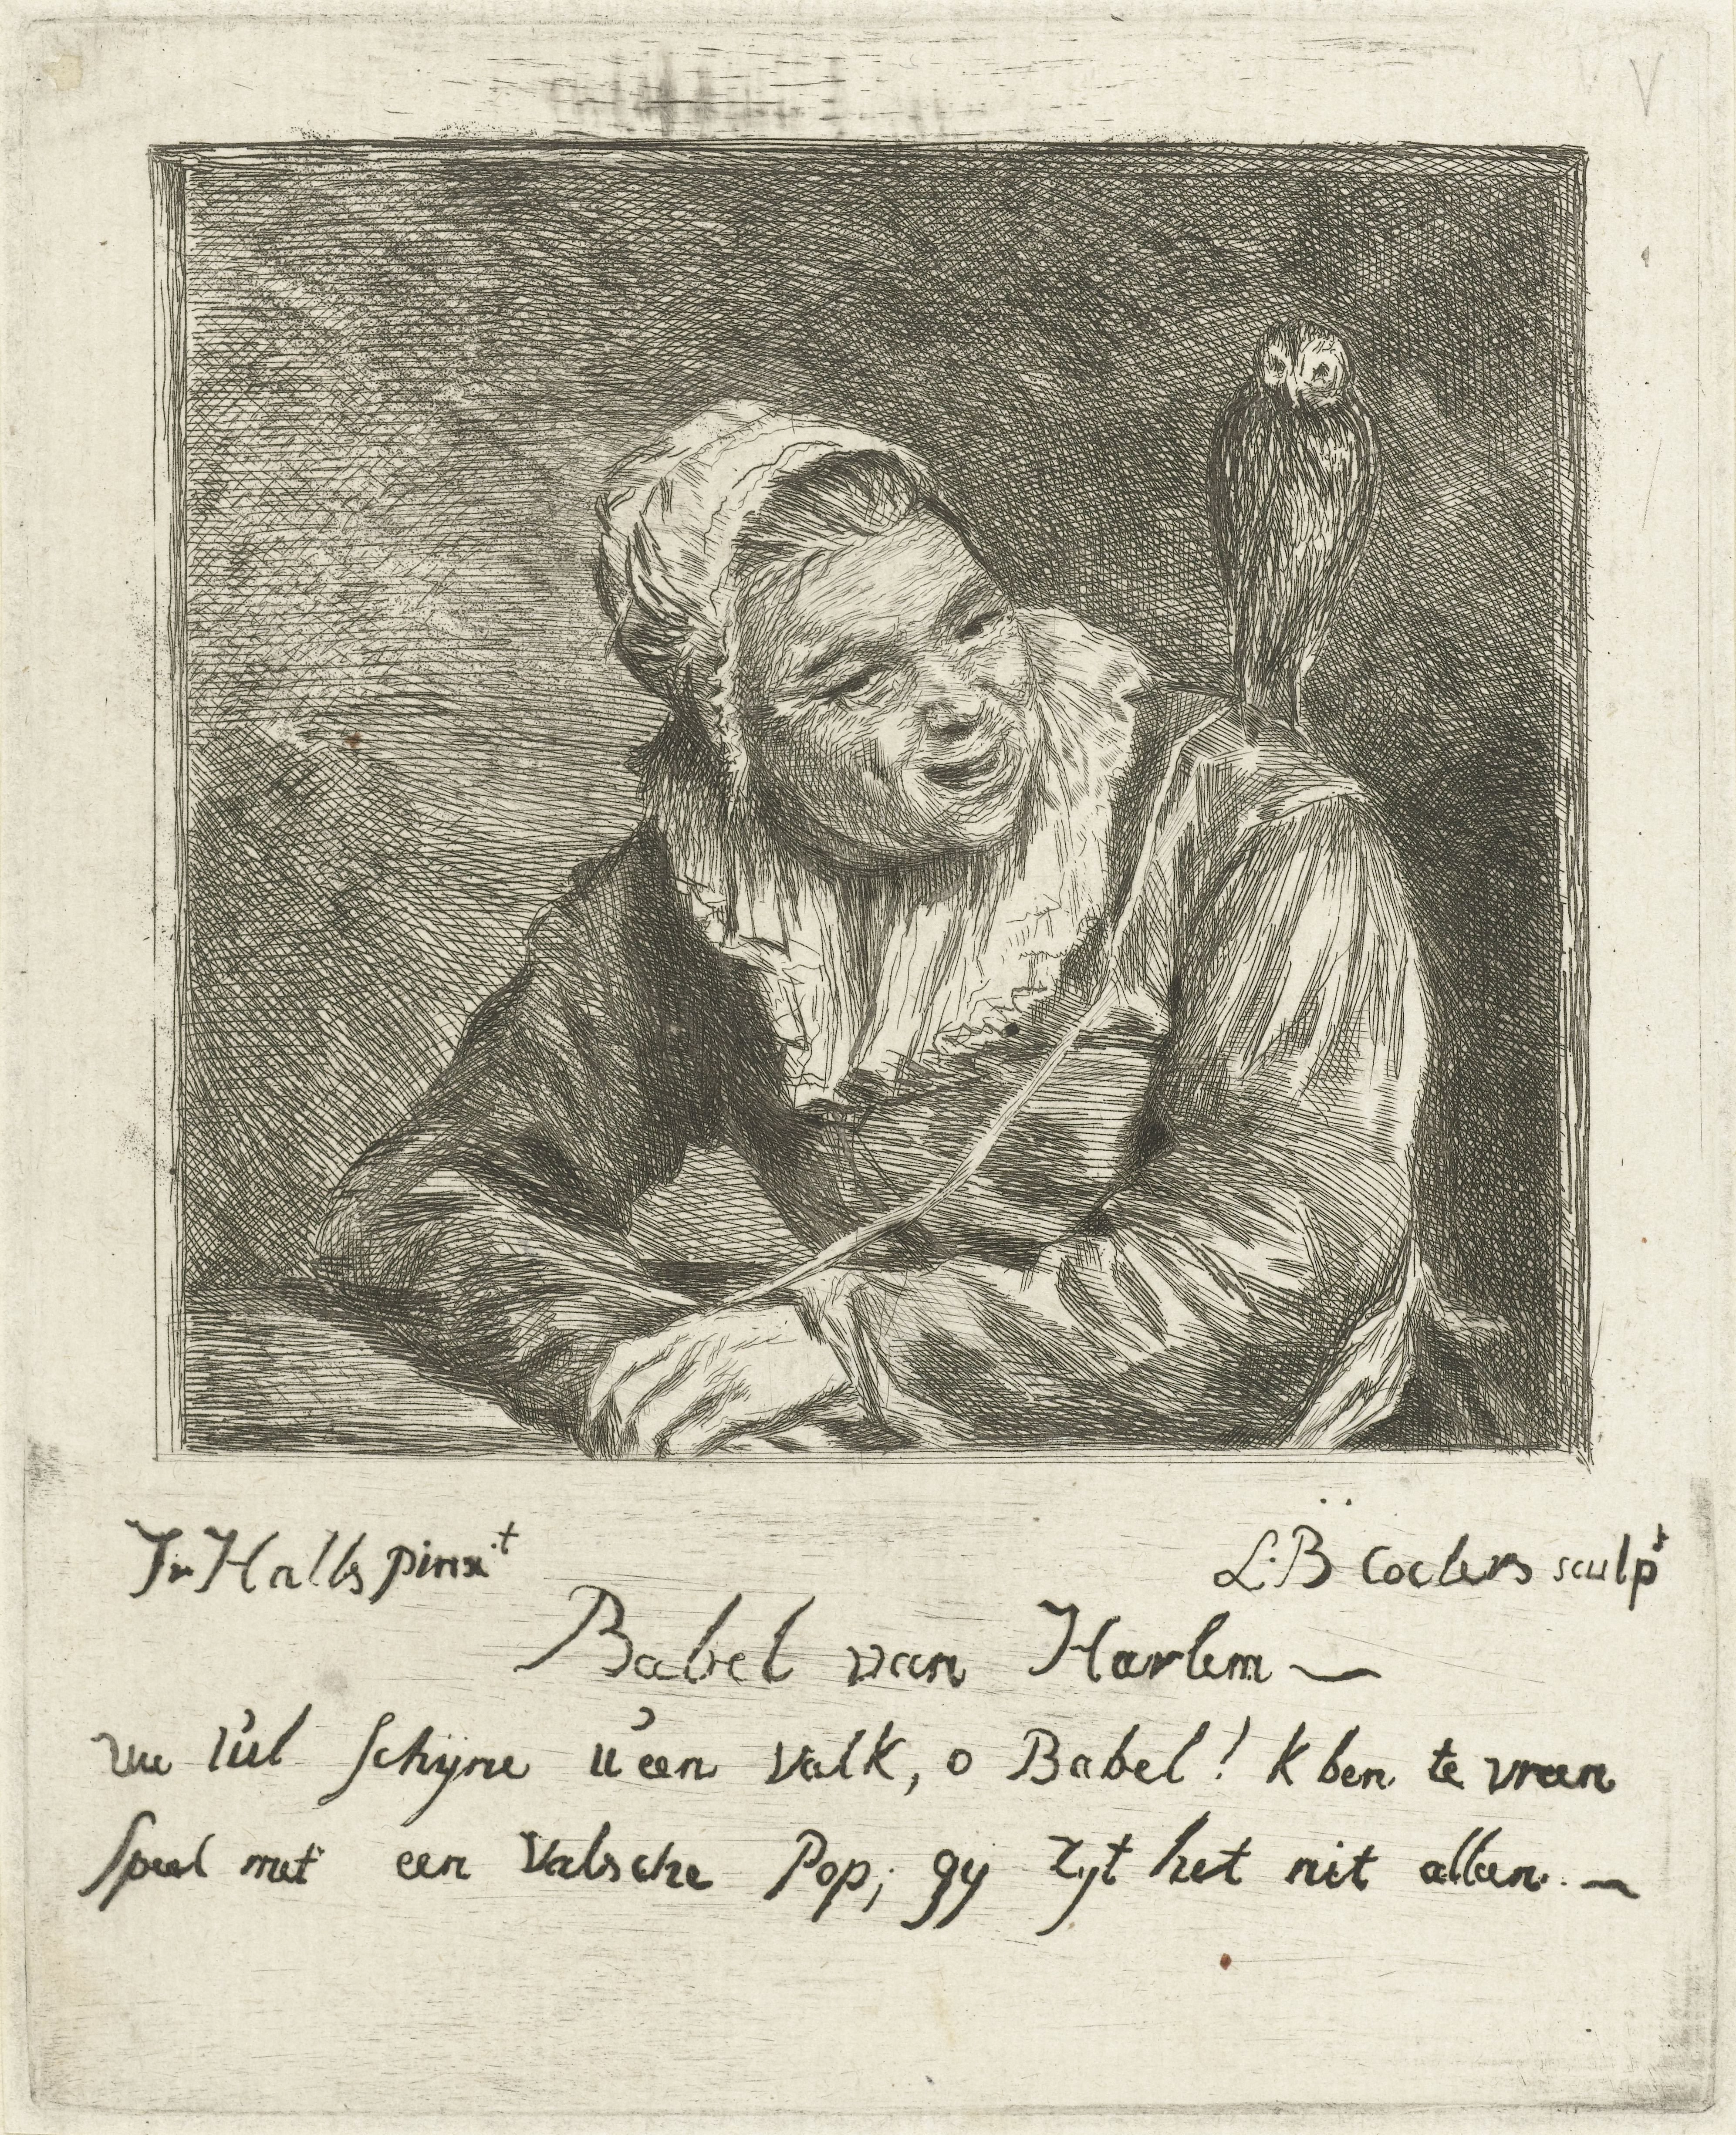 Fr Halls pinxit
L:B Coclers sculpt
Babel van Harlem
uw uul schijne u een valk, o Babel! k ben te vreen
Speel met een Valsche Pop; gy zyt het nit alleen.